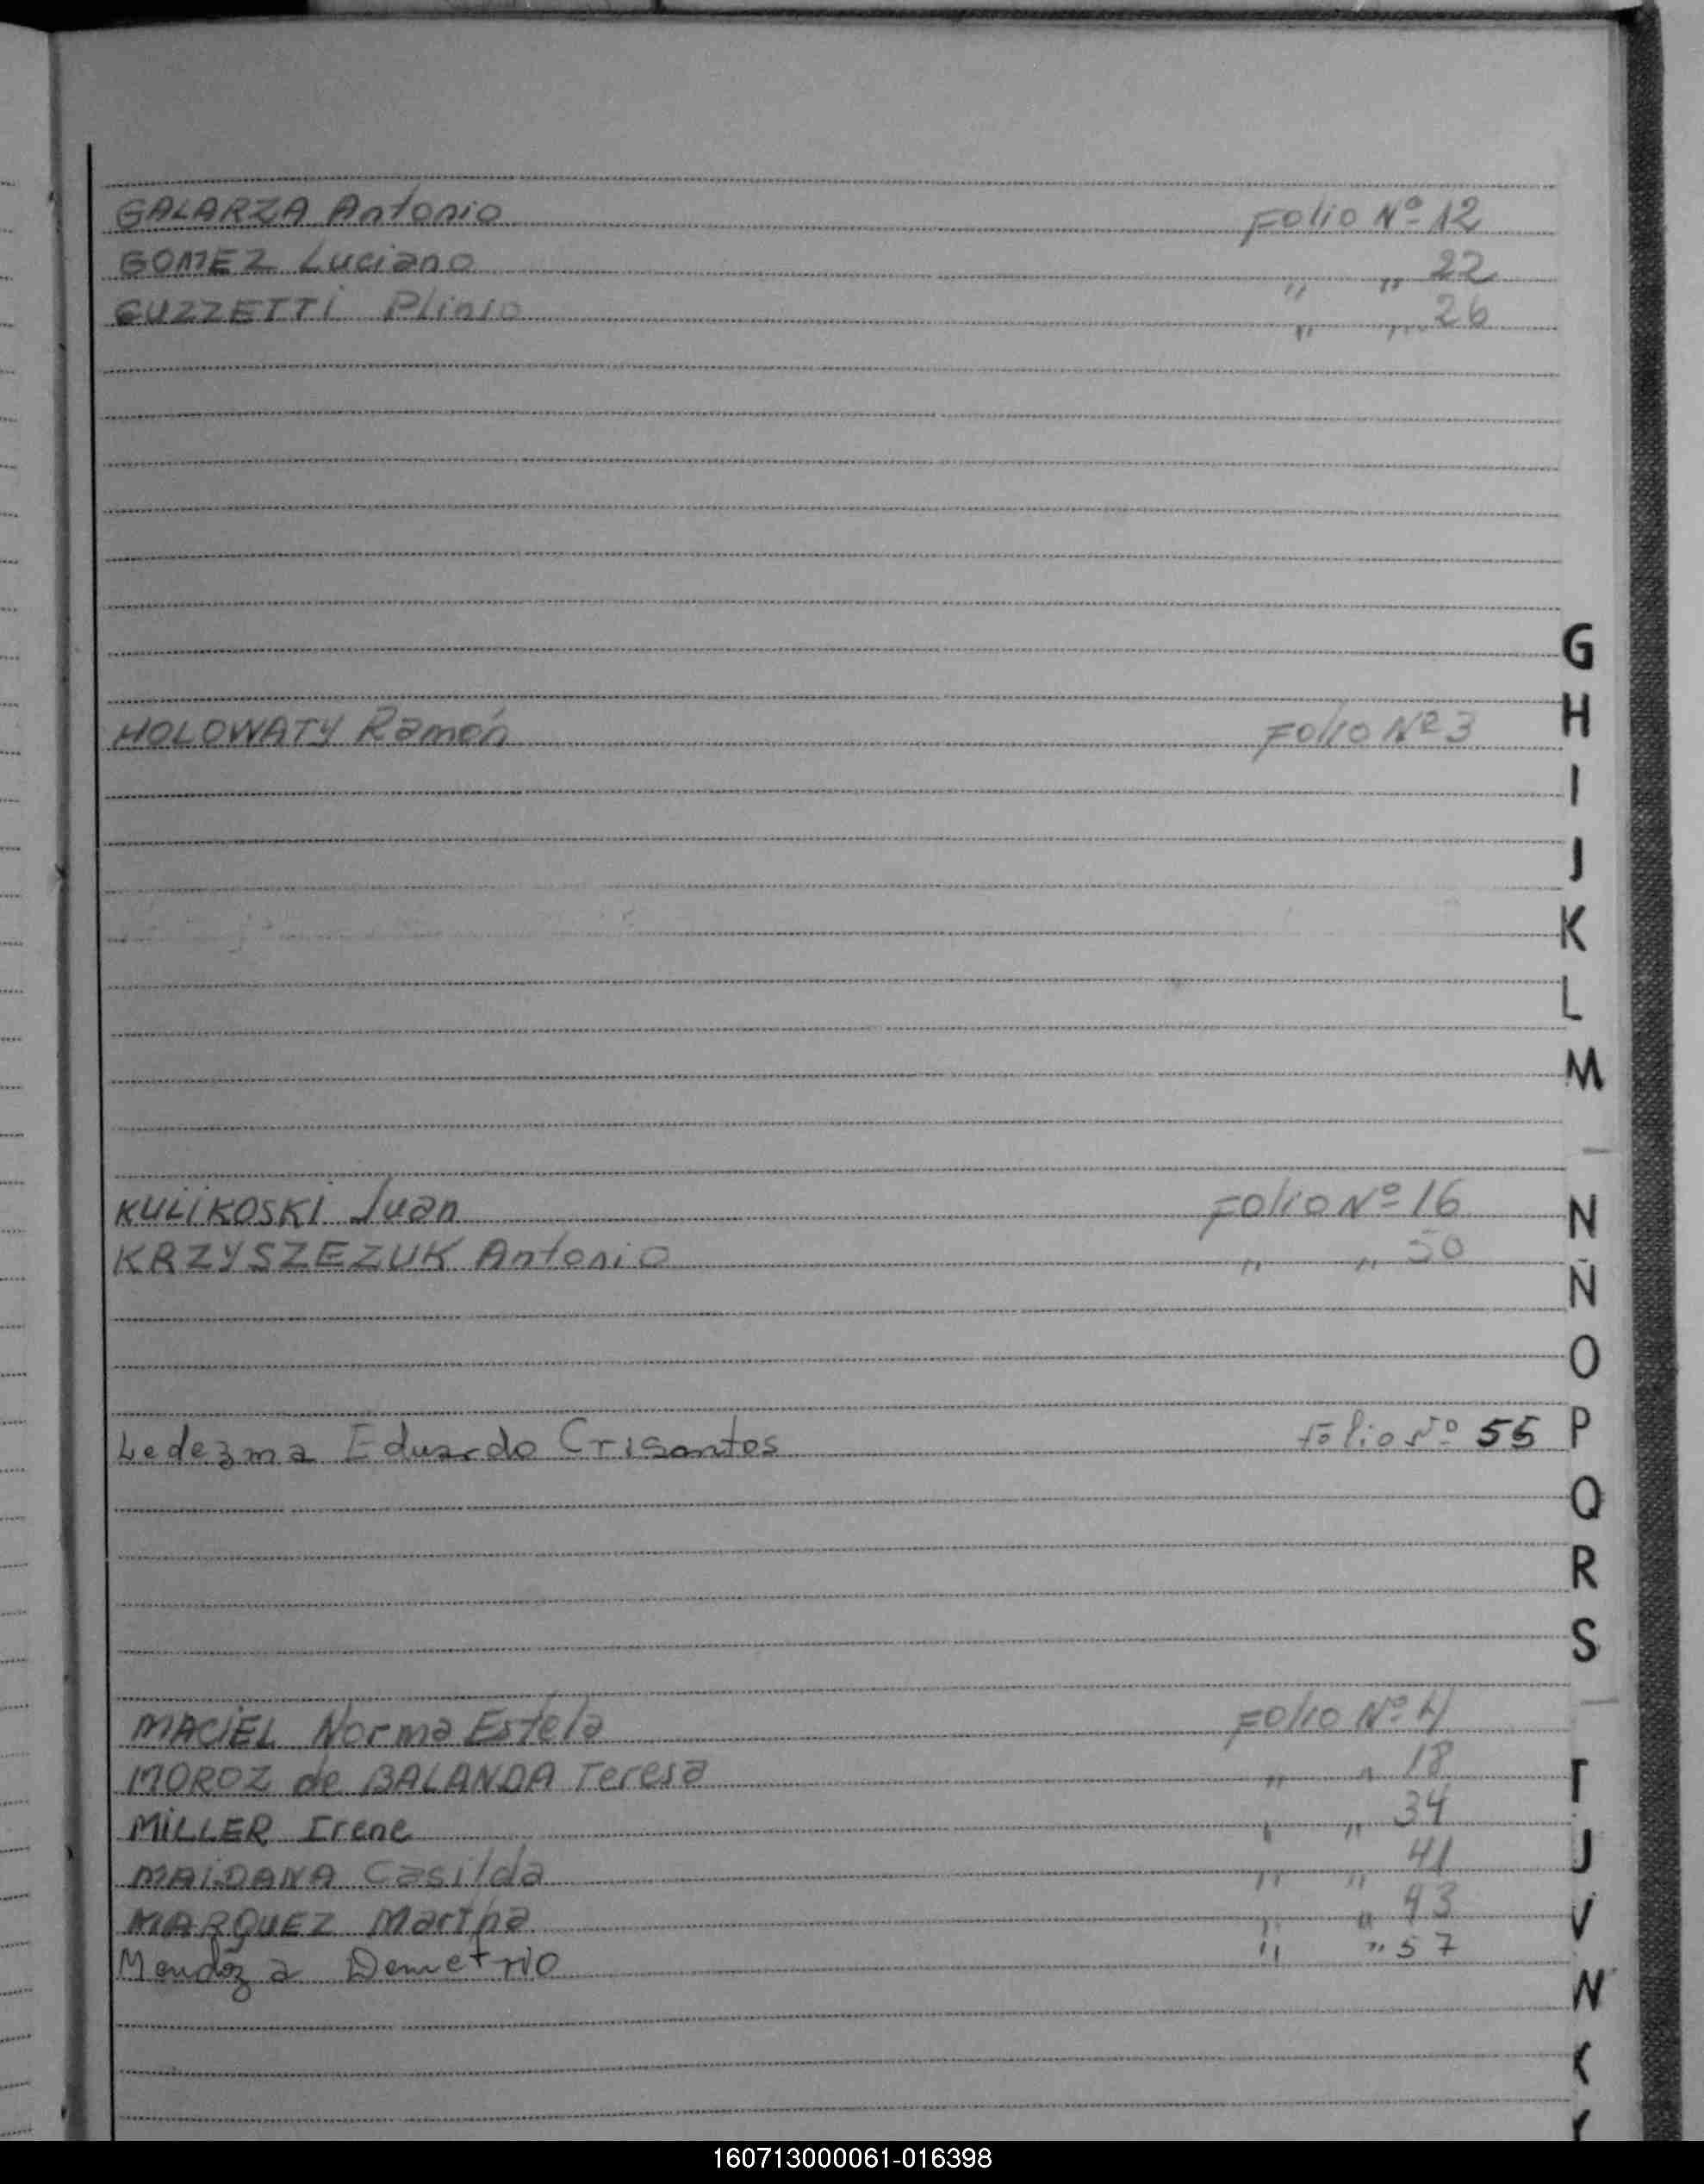 GALARZA Antonio Folio Nº 12
GOMEZ Luciano " " 22
GUZZETTI Plinio " " 26
G
HOLOWATY Ramón Folio Nº 3
H
I
J
K
L
M
KULIKOSKI Juan Folio Nº 16
N
KRZYSZEZUK Antonio " " 50
Ñ
O
Ledezma Eduardo Crisantos Folio Nº 55
P
Q
R
S
MACIEL Norma Estela Folio Nº 4
MOROZ de BALANDA Teresa " " 18
T
MILLER Irene " " 34
MAIDANA Casilda " " 41
MARQUEZ Martha " " 43
V
Mendoza Demetrio " " 57
160713000061-016398